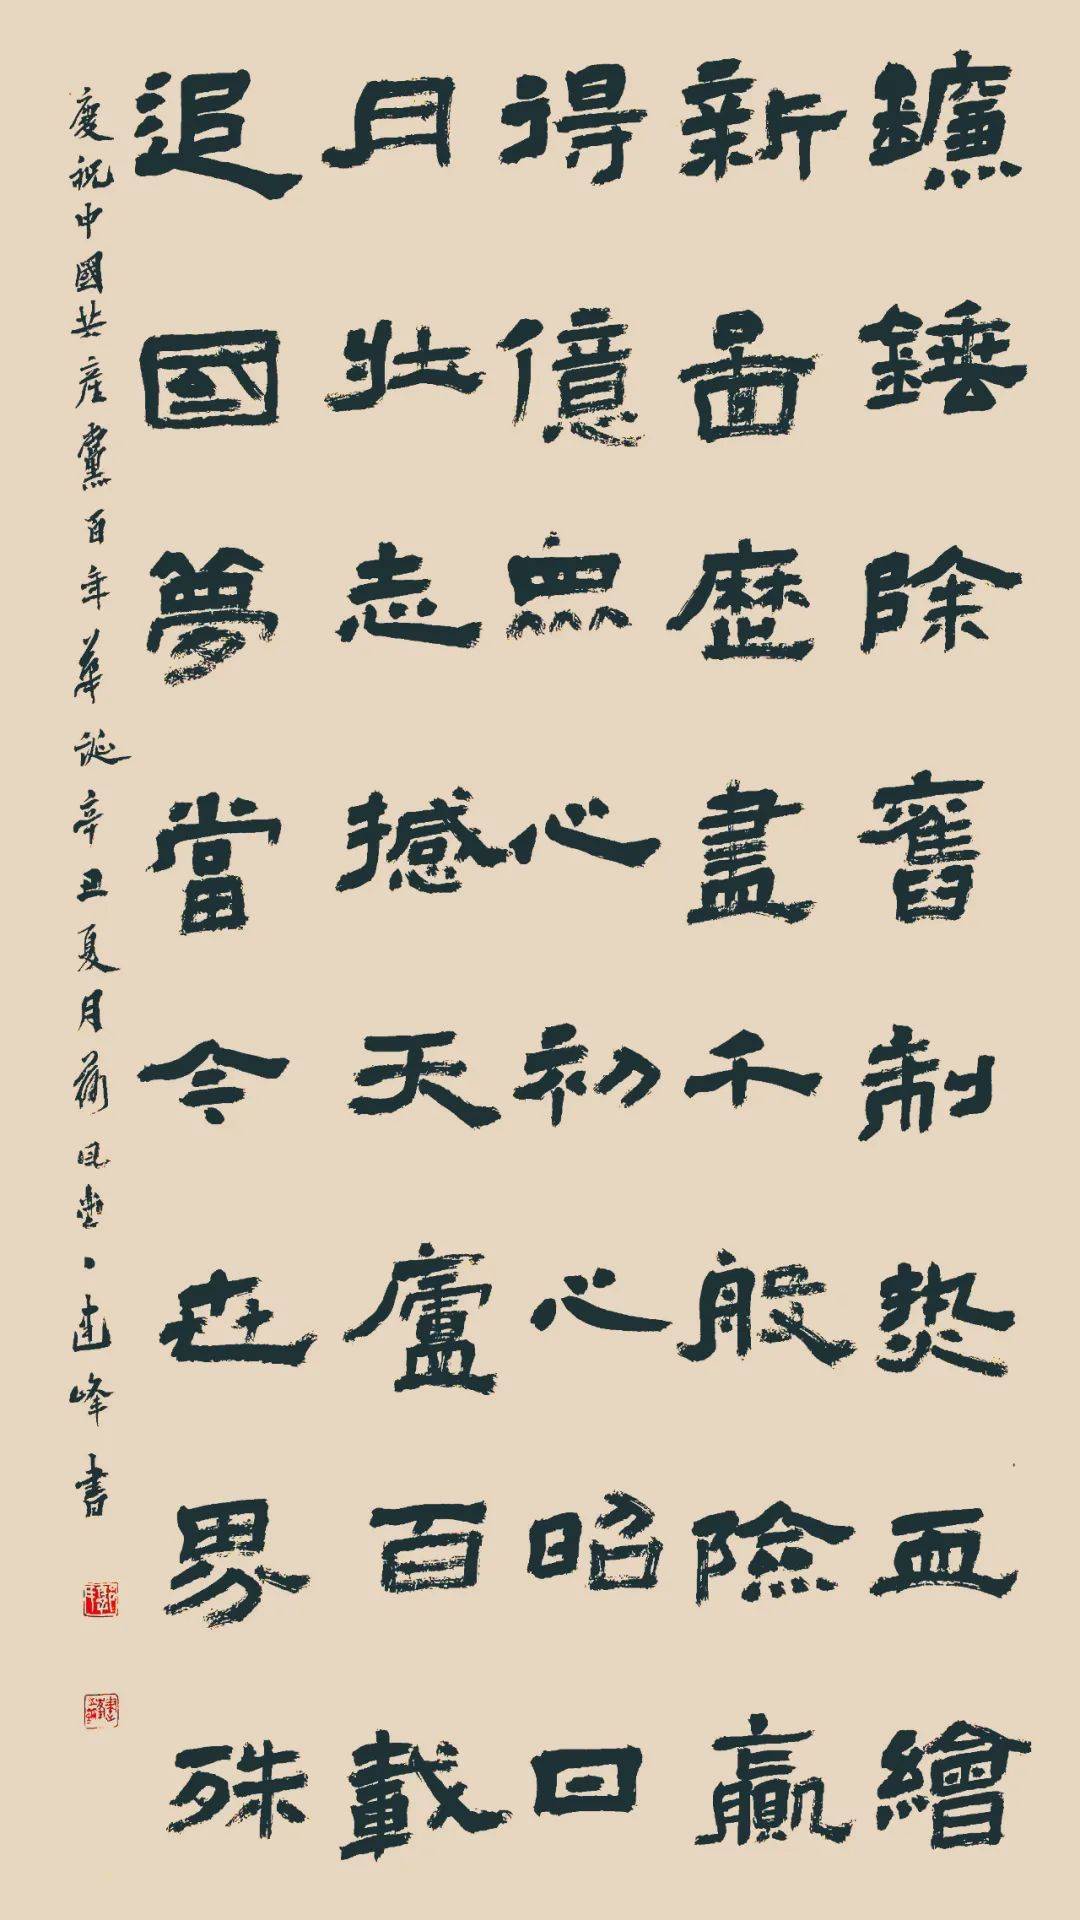 鐮錘除舊制熱血繪
新圖歷盡千般險贏
得億眾心初心昭日
月壯志撼天廬百載
追國夢當今世界殊
慶祝中國共產黨百年華誕辛丑夏月 建峰書